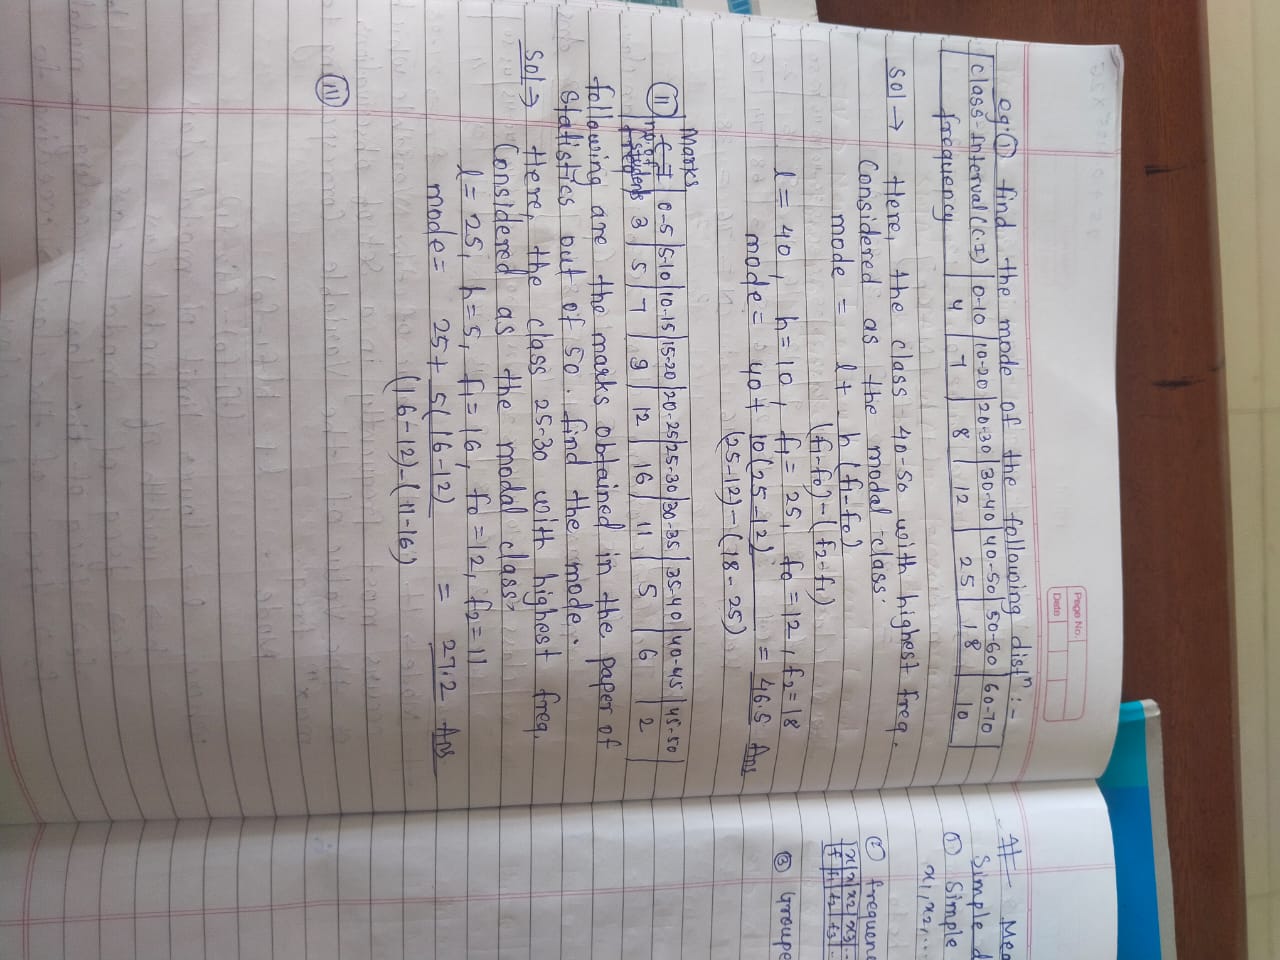 Page No.
Date
eg:① find the mode of the following distⁿ :-
Class-Interval (C.I) | 0-10 | 10-20 | 20-30 | 30-40 | 40-50 | 50-60 | 60-70
frequency | 4 | 7 | 8 | 12 | 25 | 18 | 10
Sol → Here, the class 40-50 with highest freq.
Considered as the modal class.
mode = l + h (f1-f0)
(f1-f0) - (f2-f1)
l = 40, h = 10, f1 = 25, f0 = 12, f2 = 18
mode = 40 + 10 (25-12) = 46.5 Ans
(25-12) - (18-25)
Marks
⑪ 0-5 | 5-10 | 10-15 | 15-20 | 20-25 | 25-30 | 30-35 | 35-40 | 40-45 | 45-50
no. of students 3 | 5 | 7 | 9 | 12 | 16 | 11 | 5 | 6 | 2
following are the marks obtained in the paper of
statistics out of 50. find the mode.
Sol ⇒ Here, the class 25-30 with highest freq.
Considered as the modal class.
l = 25, h = 5, f1 = 16, f0 = 12, f2 = 11
mode = 25 + 5(16-12) = 27.2 Ans
(16-12) - (11-16)
(III)
# Mea
Simple d
① Simple
x1, x2, ...
② frequen
x | x1 | x2 | x3 ...
f | f1 | f2 | f3 ..
③ Groupe